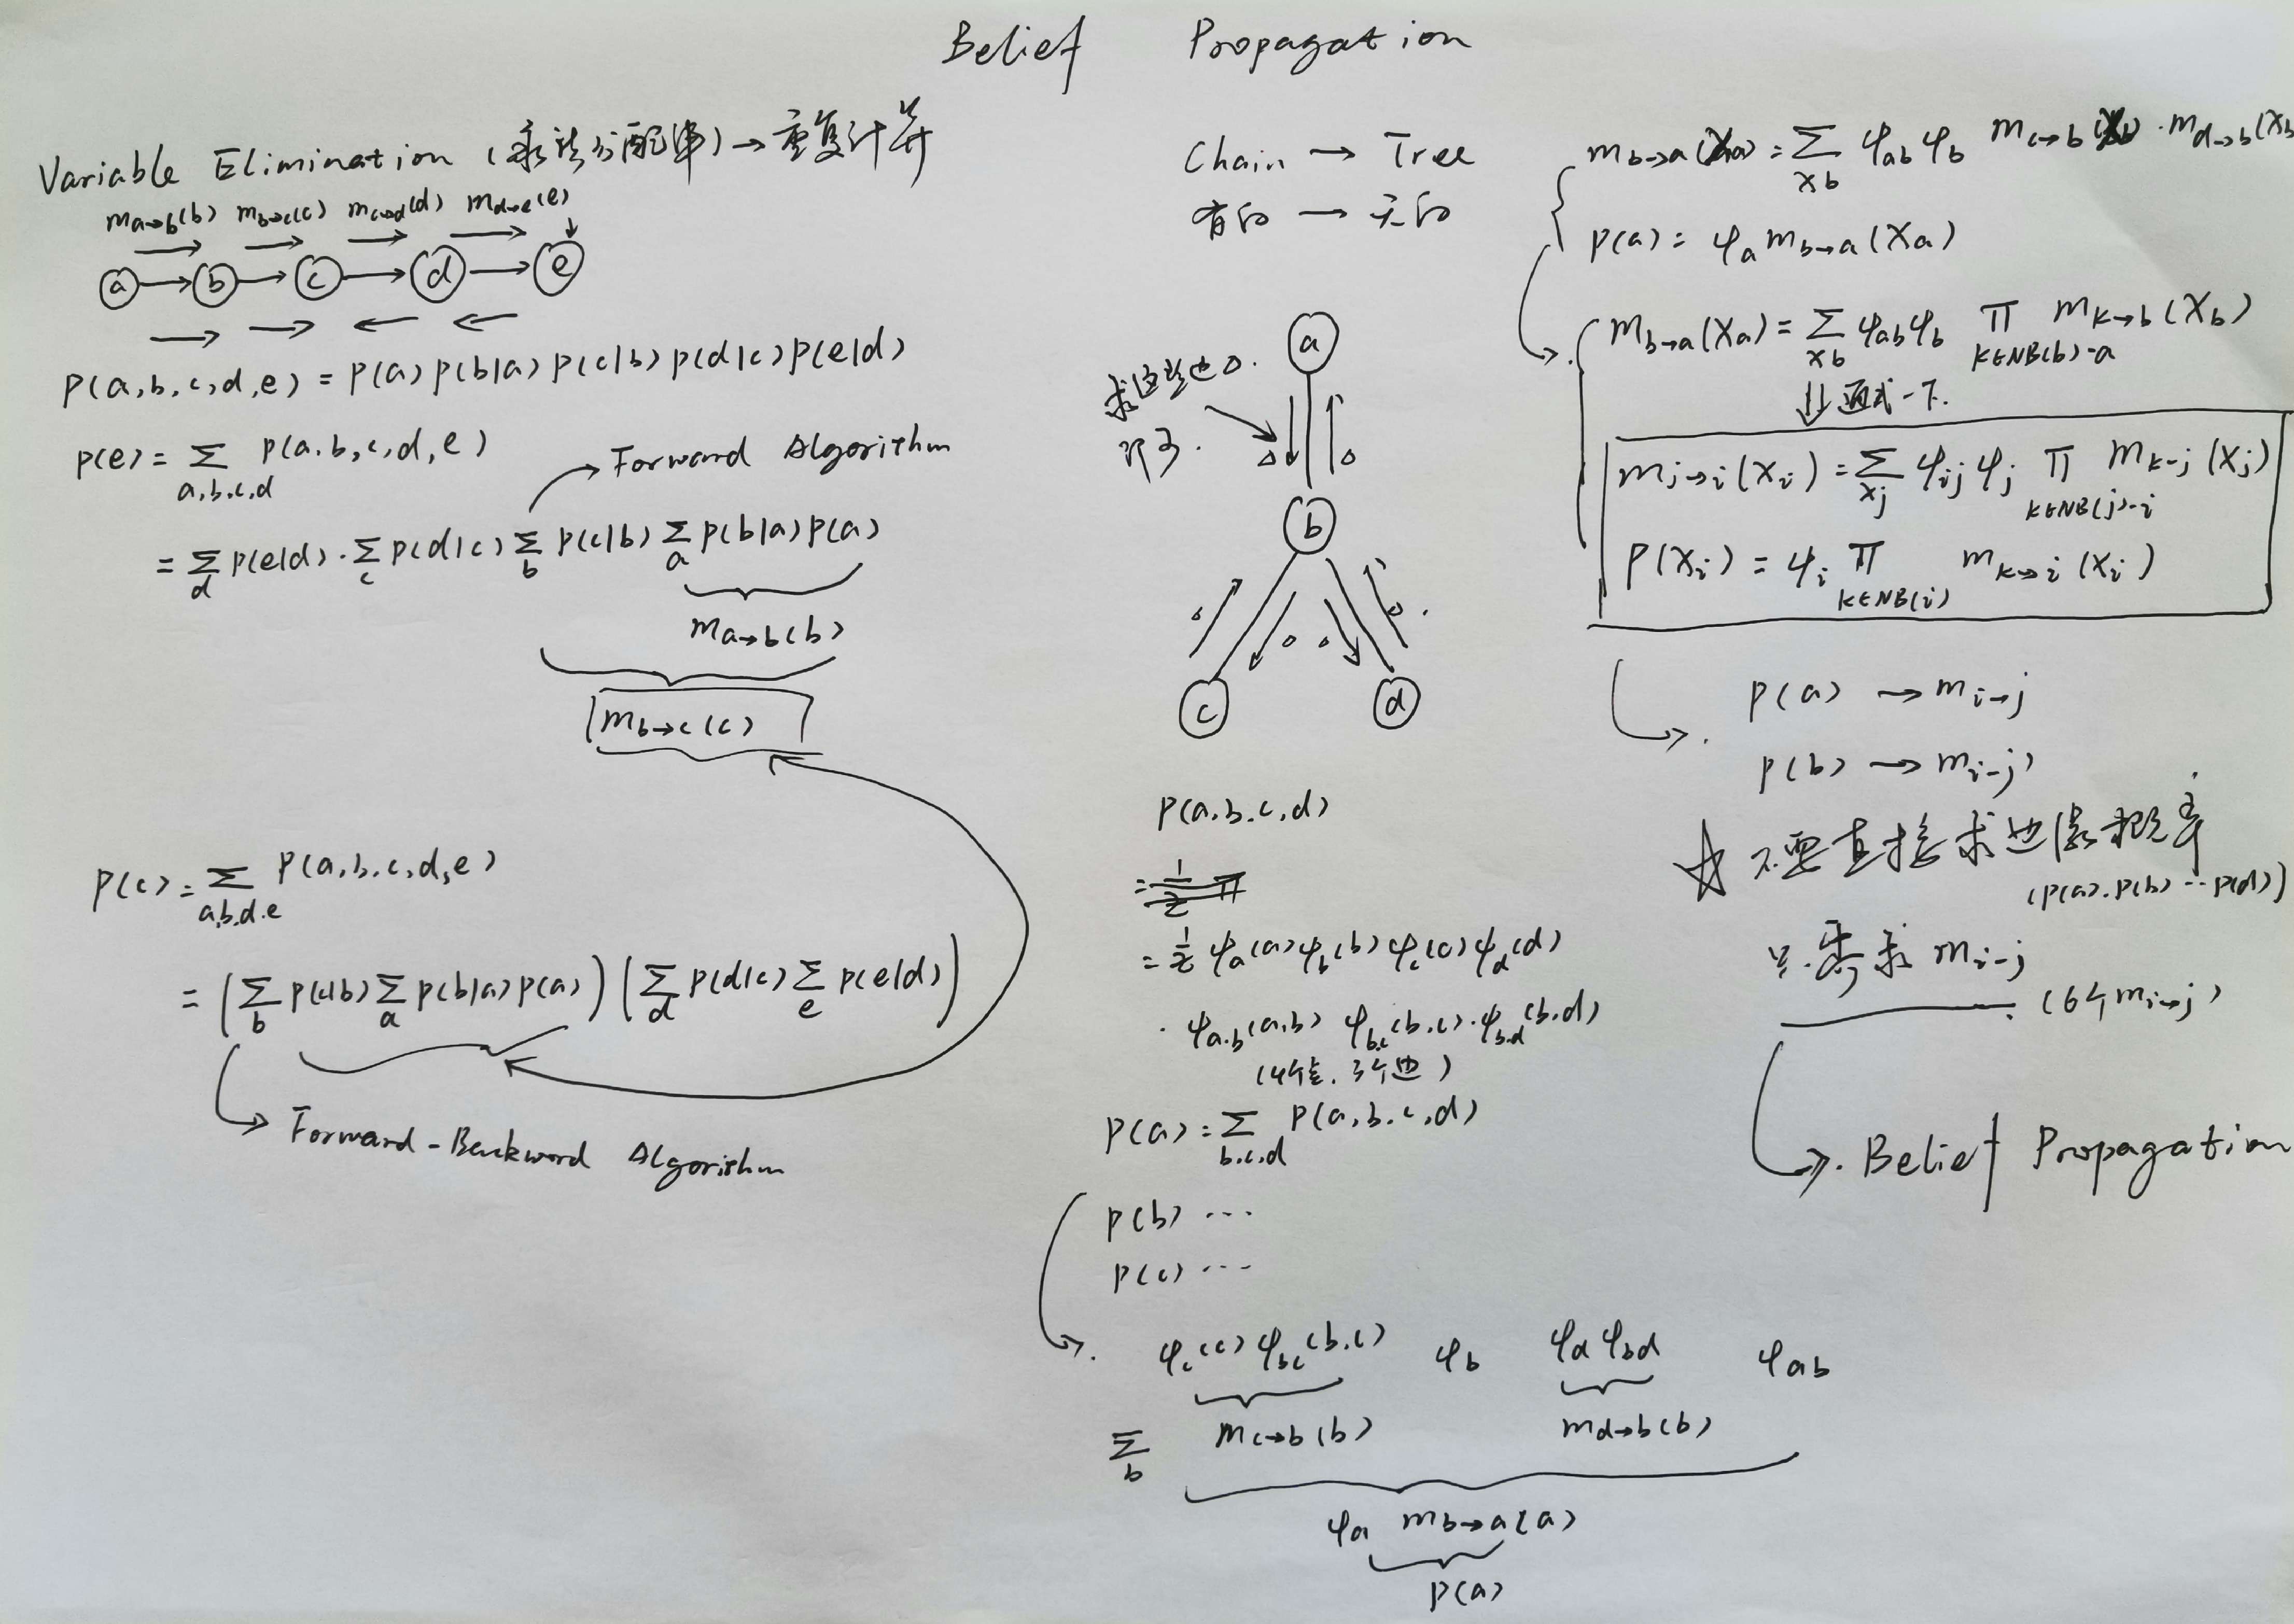 Belief Propagation
Variable Elimination (乘法分配律) → 重复计算
m_{a→b}(b) m_{b→c}(c) m_{c→d}(d) m_{d→e}(e)
a → b → c → d → e
P(a,b,c,d,e) = P(a) P(b|a) P(c|b) P(d|c) P(e|d)
P(e) = Σ_{a,b,c,d} P(a,b,c,d,e)
→ Forward Algorithm
= Σ_d P(e|d) · Σ_c P(d|c) Σ_b P(c|b) Σ_a P(b|a) P(a)
m_{a→b}(b)
m_{b→c}(c)
P(c) = Σ_{a,b,d,e} P(a,b,c,d,e)
= (Σ_b P(c|b) Σ_a P(b|a) P(a)) (Σ_d P(d|c) Σ_e P(e|d))
→ Forward-Backward Algorithm
Chain → Tree
有向 → 无向
a
求这些边
即可.
b
c d
P(a,b,c,d)
= 1/Z π
= 1/Z ψ_a(a) ψ_b(b) ψ_c(c) ψ_d(d)
· ψ_{a,b}(a,b) ψ_{b,c}(b,c) · ψ_{b,d}(b,d)
(4个点, 3个边)
P(a) = Σ_{b,c,d} P(a,b,c,d)
P(b) ...
P(c) ...
ψ_c(c) ψ_{bc}(b,c) ψ_b ψ_d ψ_{bd} ψ_{ab}
Σ_b m_{c→b}(b) m_{d→b}(b)
ψ_a m_{b→a}(a)
P(a)
m_{b→a}(x_a) = Σ_{x_b} ψ_{ab} ψ_b m_{c→b}(x_b) · m_{d→b}(x_b
P(a) = ψ_a m_{b→a}(x_a)
m_{b→a}(x_a) = Σ_{x_b} ψ_{ab} ψ_b π_{k∈NB(b)-a} m_{k→b}(x_b)
⇓ 通式一下.
m_{j→i}(x_i) = Σ_{x_j} ψ_{ij} ψ_j π_{k∈NB(j)-i} m_{k→j}(x_j)
P(x_i) = ψ_i π_{k∈NB(i)} m_{k→i}(x_i)
P(a) → m_{i→j}
P(b) → m_{i→j}
☆ 不要直接求边缘概率
(P(a), P(b) ... P(d))
只需求 m_{i→j}
(6个 m_{i→j})
→ Belief Propagation